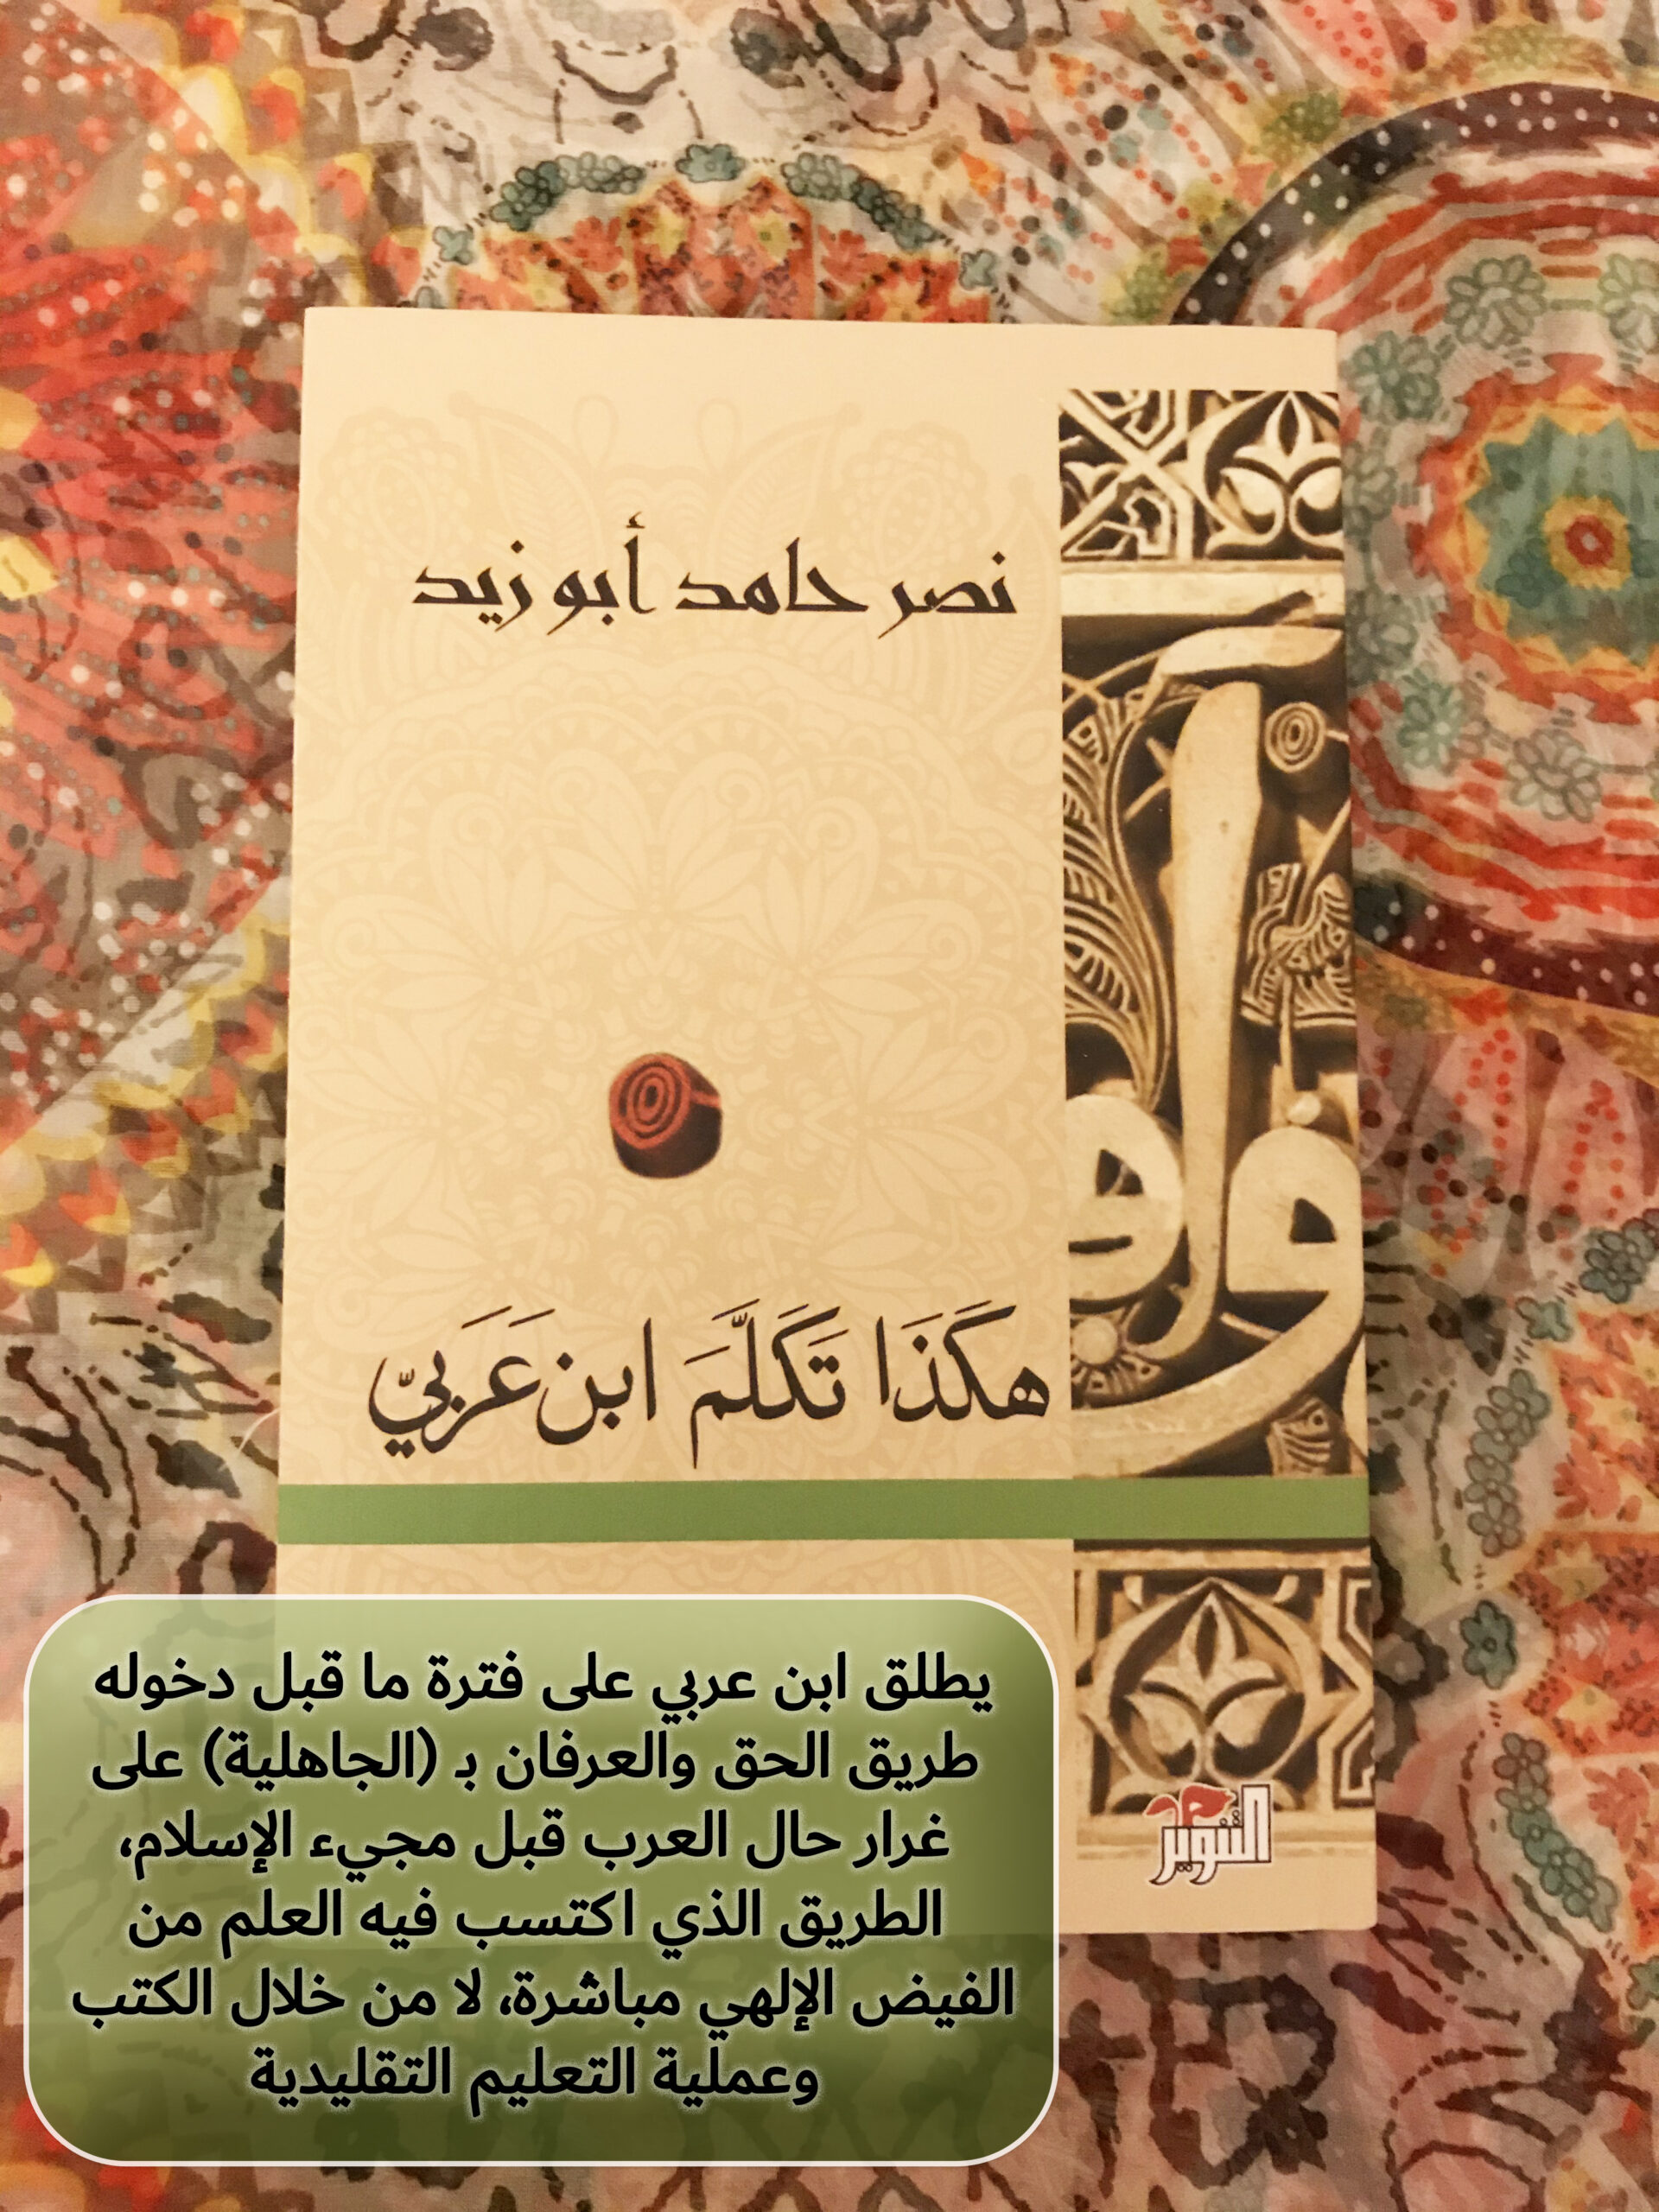 نصر حامد أبو زيد
هكَذَا تَكَلَّمَ ابن عَرَبيّ
التنوير
يطلق ابن عربي على فترة ما قبل دخوله
طريق الحق والعرفان بـ (الجاهلية) على
غرار حال العرب قبل مجيء الإسلام،
الطريق الذي اكتسب فيه العلم من
الفيض الإلهي مباشرة، لا من خلال الكتب
وعملية التعليم التقليدية